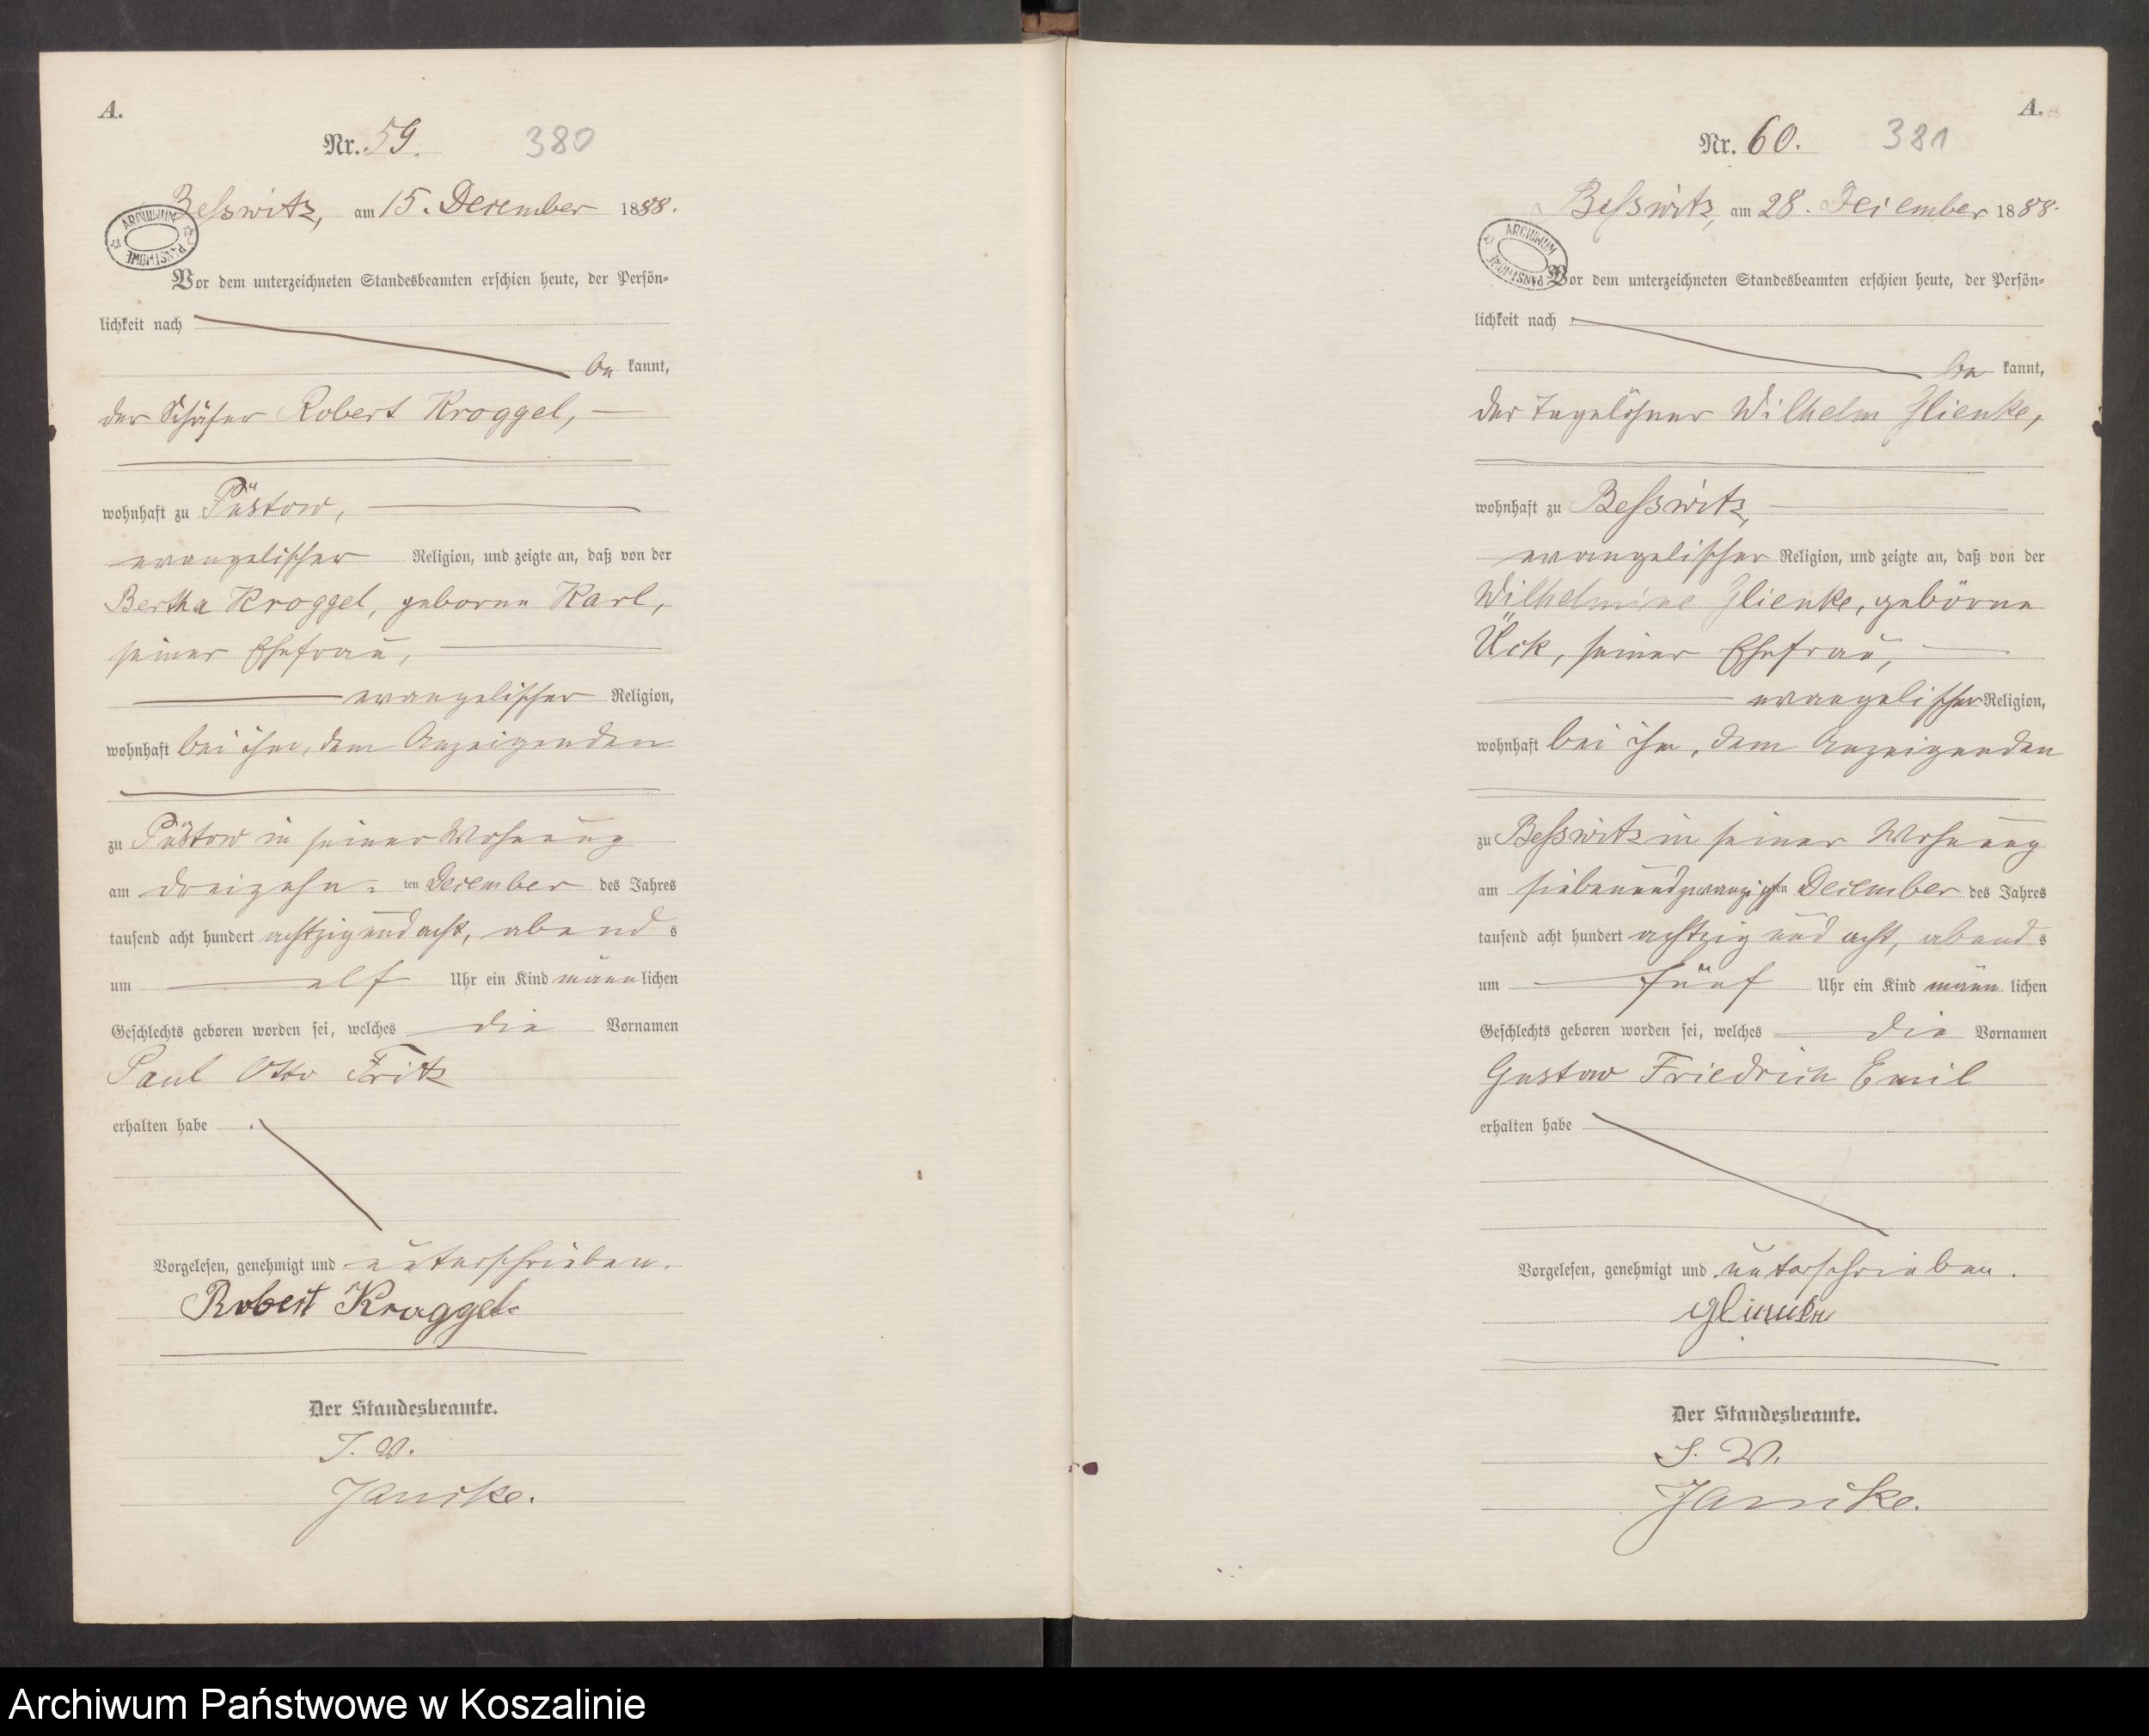 A.
Nr. 59. 380
Besswitz, am 15. December 1888.
ARCHIWUM PAŃSTWOWE
Vor dem unterzeichneten Standesbeamten erschien heute, der Persön-
lichkeit nach
be kannt,
der Schäfer Robert Kroggel,
wohnhaft zu Püstow,
evangelischer Religion, und zeigte an, daß von der
Bertha Kroggel, geborne Karl,
seiner Ehefrau,
evangelischer Religion,
wohnhaft bei ihm, dem Anzeigenden
zu Püstow in seiner Wohnung
am dreizehn- ten December des Jahres
tausend acht hundert achtzig und acht, abend s
um elf Uhr ein Kind männ lichen
Geschlechts geboren worden sei, welches die Vornamen
Paul Otto Fritz
erhalten habe .
Vorgelesen, genehmigt und unterschrieben.
Robert Kroggel.
Der Standesbeamte.
J. V.
Janike.
A.
Nr. 60. 381
Besswitz, am 28. December 1888.
ARCHIWUM PAŃSTWOWE
Vor dem unterzeichneten Standesbeamten erschien heute, der Persön-
lichkeit nach
be kannt,
der Tagelöhner Wilhelm Glienke,
wohnhaft zu Besswitz,
evangelischer Religion, und zeigte an, daß von der
Wilhelmine Glienke, geborne
Ück, seiner Ehefrau,
evangelischer Religion,
wohnhaft bei ihm, dem Anzeigenden
zu Besswitz in seiner Wohnung
am siebenundzwanzigsten December des Jahres
tausend acht hundert achtzig und acht, abend s
um fünf Uhr ein Kind männ lichen
Geschlechts geboren worden sei, welches die Vornamen
Gustav Friedrich Emil
erhalten habe
Vorgelesen, genehmigt und unterschrieben.
Glienke
Der Standesbeamte.
J. V.
Janike.
Archiwum Państwowe w Koszalinie